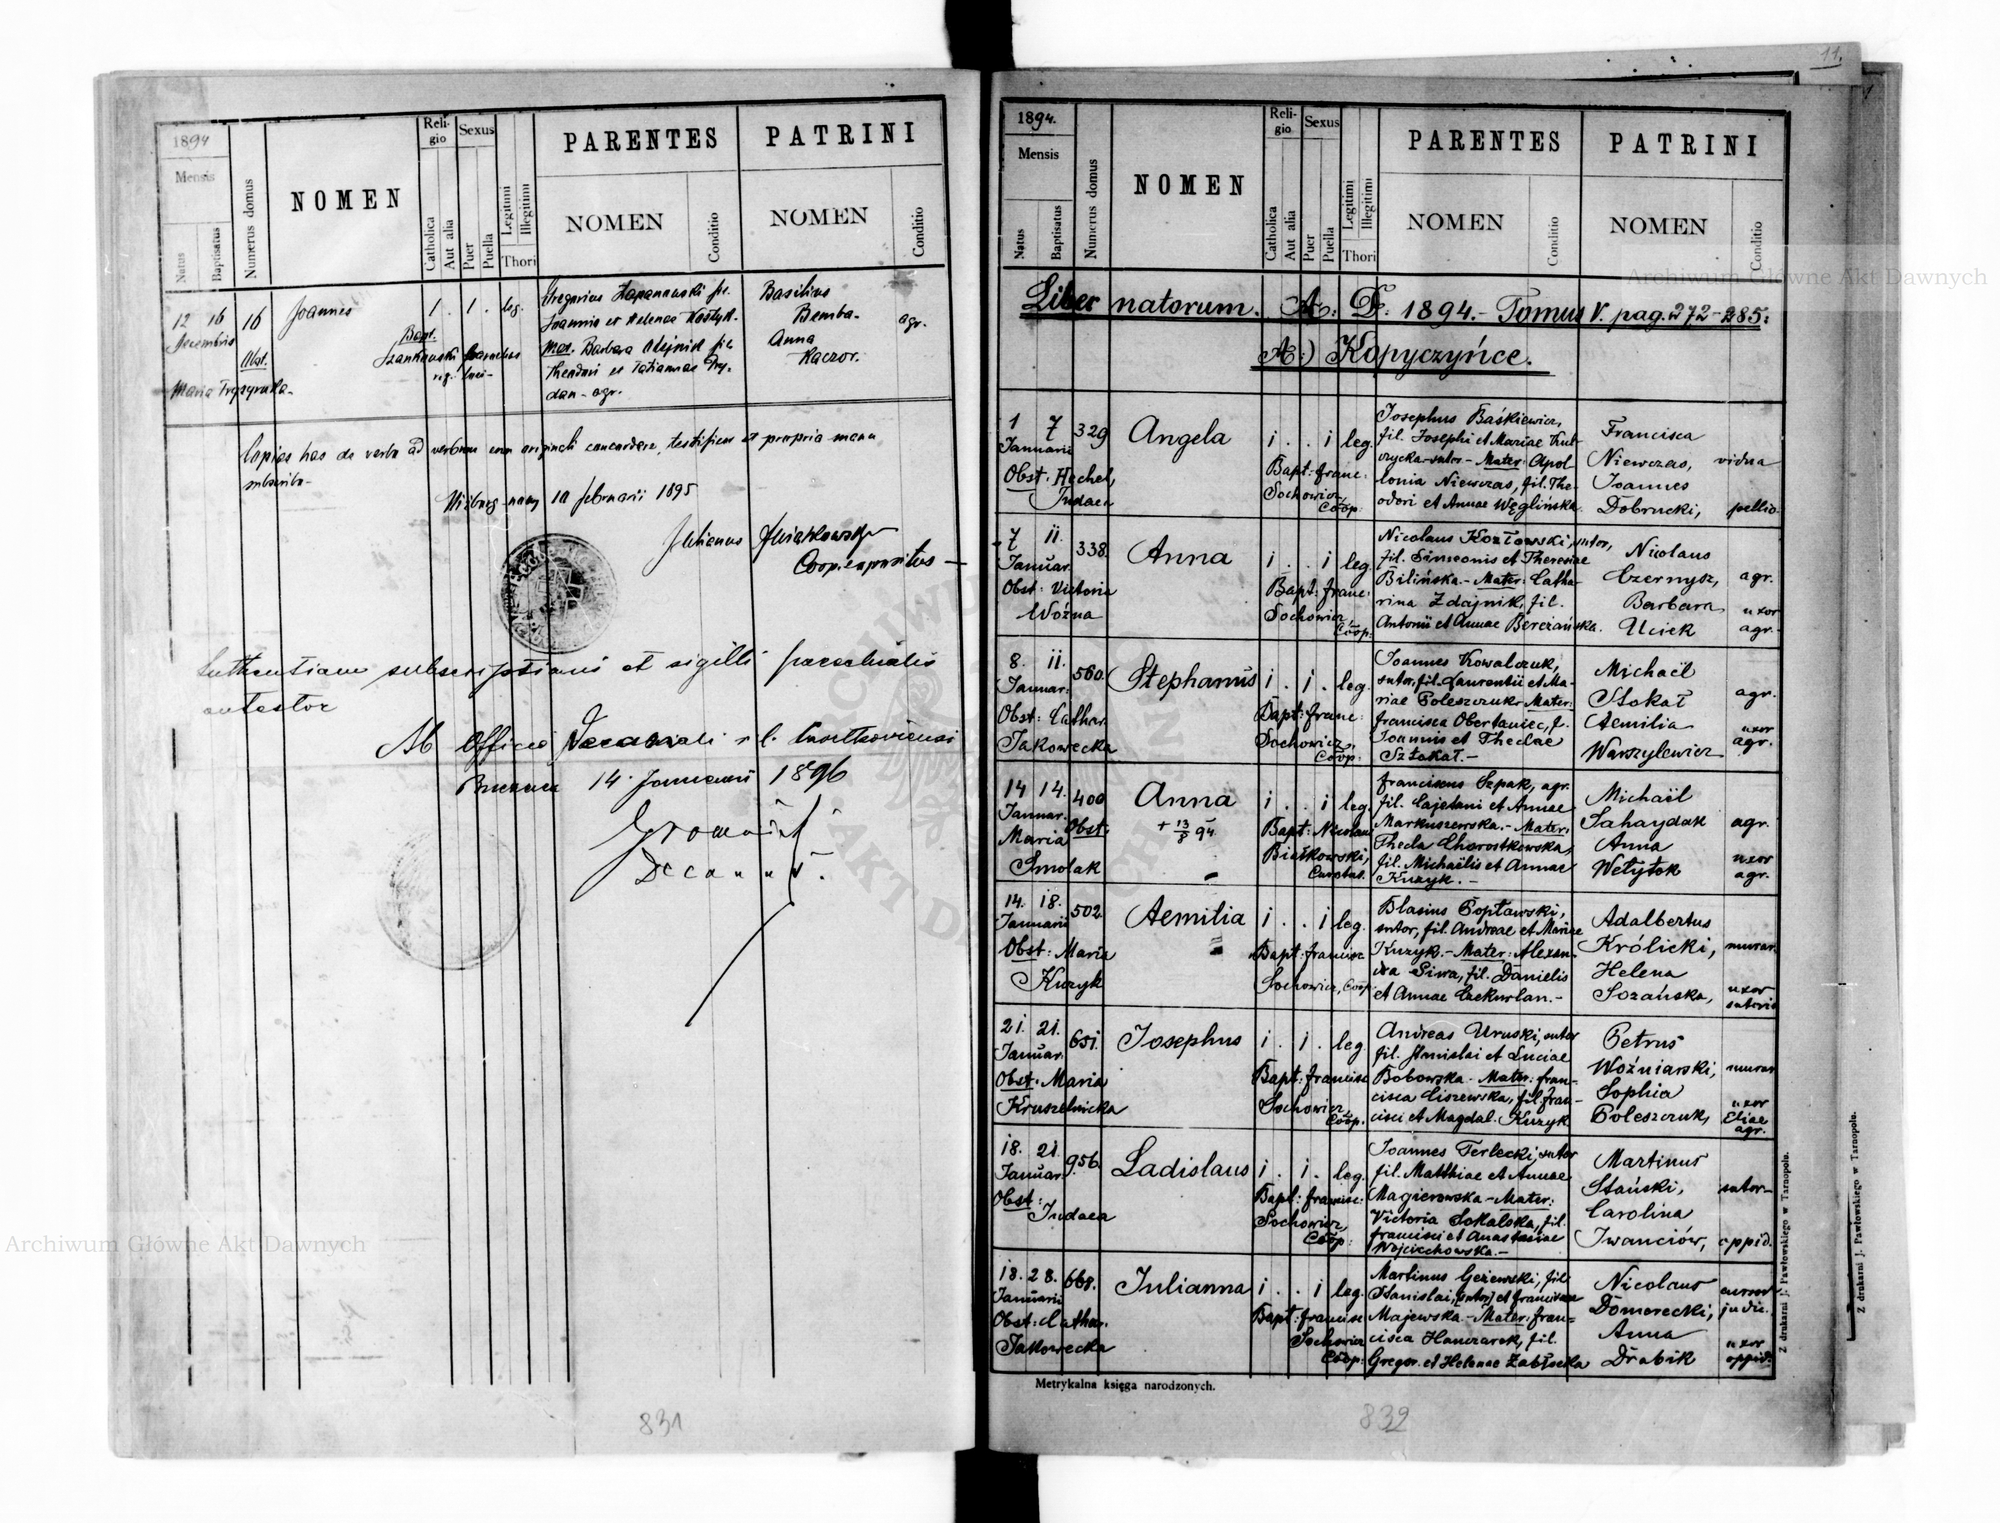 11.
1894
Mensis
Natus
Baptisatus
Numerus domus
NOMEN
Reli-
gio
Catholica
Aut alia
Sexus
Puer
Puella
Legitimi
Illegitimi
Thori
PARENTES
NOMEN
Conditio
PATRINI
NOMEN
Conditio
12 16
Decembris
16
Obst.
Maria
Joannes
1 . 1 . leg.
Bapt.
Gregorius
Joannis et Helenae Kostyk.
Mat. Barbara Olejnik fil.
Theodori et Tatiannae Pry-
dan - agr.
Basilius
Bemba.
Anna
Kaczor.
agr.
Copias has de verbo ad verbum cum originali concordare, testificor et propria manu
subscribo.
10 februarii 1895
Julianus
Coop. expositus
Authentiam subscriptionis et sigilli parochialis
attestor
Ab Officio Decanali r. l.
14 Januarii 1896
Decanus.
831
1894.
Mensis
Natus
Baptisatus
Numerus domus
NOMEN
Reli-
gio
Catholica
Aut alia
Sexus
Puer
Puella
Legitimi
Illegitimi
Thori
PARENTES
NOMEN
Conditio
PATRINI
NOMEN
Conditio
Liber natorum. A: D. 1894. - Tomus V. pag. 272-285.
A.) Kopyczyńce.
1 7 329
Januarii
Obst. Hechel,
Judaea
Angela
i . . i leg.
Bapt: franc:
Sochowicz,
Coop:
Josephus Baśkiewicz,
fil. Josephi et Mariae Kul-
czycka - sutor - Mater: Apol-
lonia Niewczas, fil. The-
odori et Annae Węglińska.
Francisca
Niewczas, vidua
Joannes
Dobrucki, pellio.
7 11. 338.
Januar.
Obst: Victoria
Woźna
Anna
i . . i leg.
Bapt: franc:
Sochowicz,
Coop:
Nicolaus Kozłowski, sutor,
fil. Simeonis et Theresiae
Bilińska. - Mater: Catha-
rina Zdajnik, fil.
Antonii et Annae Bereżańska.
Nicolaus
Czernysz, agr.
Barbara uxor
Uciek agr.
8. 11. 560.
Januar:
Obst: Cathar.
Jakowecka
Stephanus
i . i . leg.
Bapt: franc:
Sochowicz,
Coop:
Joannes Kowalczuk,
sutor, fil. Laurentii et Ma-
riae Poleszczuk - Mater:
francisca Obertaniec, f.
Joannis et Theclae
Sztokał. -
Michaël
Stokał agr.
Aemilia uxor
Warszylewicz agr.
14 14. 400
Januar.
Obst:
Maria
Smolak
Anna
+ 13/8 94.
i . . i leg.
Bapt: Nicolaus
Białkowski,
Curatus.
franciscus Szpak, agr.
fil. Cajetani et Annae
Markuszewska. - Mater:
Thecla Chorostkowska,
fil. Michaëlis et Annae
Kuzyk. -
Michaël
Sahaydak agr.
Anna uxor
Wetytok agr.
14. 18. 502.
Januarii
Obst: Maria
Kuzyk
Aemilia
i . . i leg.
Bapt: francisc
Sochowicz, Coop:
Blasius Popławski,
sutor, fil. Andreae et Mariae
Kuzyk. - Mater: Alexan-
dra Siwa, fil. Danielis
et Annae Czekurlan. -
Adalbertus
Królicki, murar.
Helena
Sozańska, uxor
sutoris
21. 21. 651.
Januar.
Obst. Maria
Kruszelnicka
Josephus
i . i . leg
Bapt: francisc
Sochowicz,
Coop.
Andreas Uruski, sutor
fil. Stanislai et Luciae
Bobowska. Mater: fran-
cisca Ciszewska, fil. fran-
cisci et Magdal. Kuzyk
Petrus
Woźniarski, murar
Sophia
Poleszczuk, uxor
Eliae
agr.
18. 21. 956.
Januar.
Obst:
Judaea
Ladislaus
i . i . leg.
Bapt: francisc:
Sochowicz
Coop:
Joannes Terlecki, sutor
fil. Matthiae et Annae
Magierowska - Mater:
Victoria Sokalska, fil.
francisci et Anastasiae
Wojciechowska. -
Martinus
Stański, sutor -
Carolina
Iwanciów, oppid.
18. 28. 668.
Januarii
Obst: Cathar.
Jakowecka
Julianna
i . . i leg.
Bapt: francisc
Sochowicz
Coop:
Martinus Geżewski, fil.
Stanislai, (sutor) et franciscae
Majewska - Mater: fran-
cisca Hanczarek, fil.
Gregor. et Helenae Zabłocka
Nicolaus cursor
Domerecki, judic.
Anna uxor
Drabik oppid.
Metrykalna księga narodzonych.
Z drukarni J. Pawłowskiego w Tarnopolu.
Z drukarni J. Pawłowskiego w Tarnopolu.
832
Archiwum Główne Akt Dawnych
Archiwum Główne Akt Dawnych